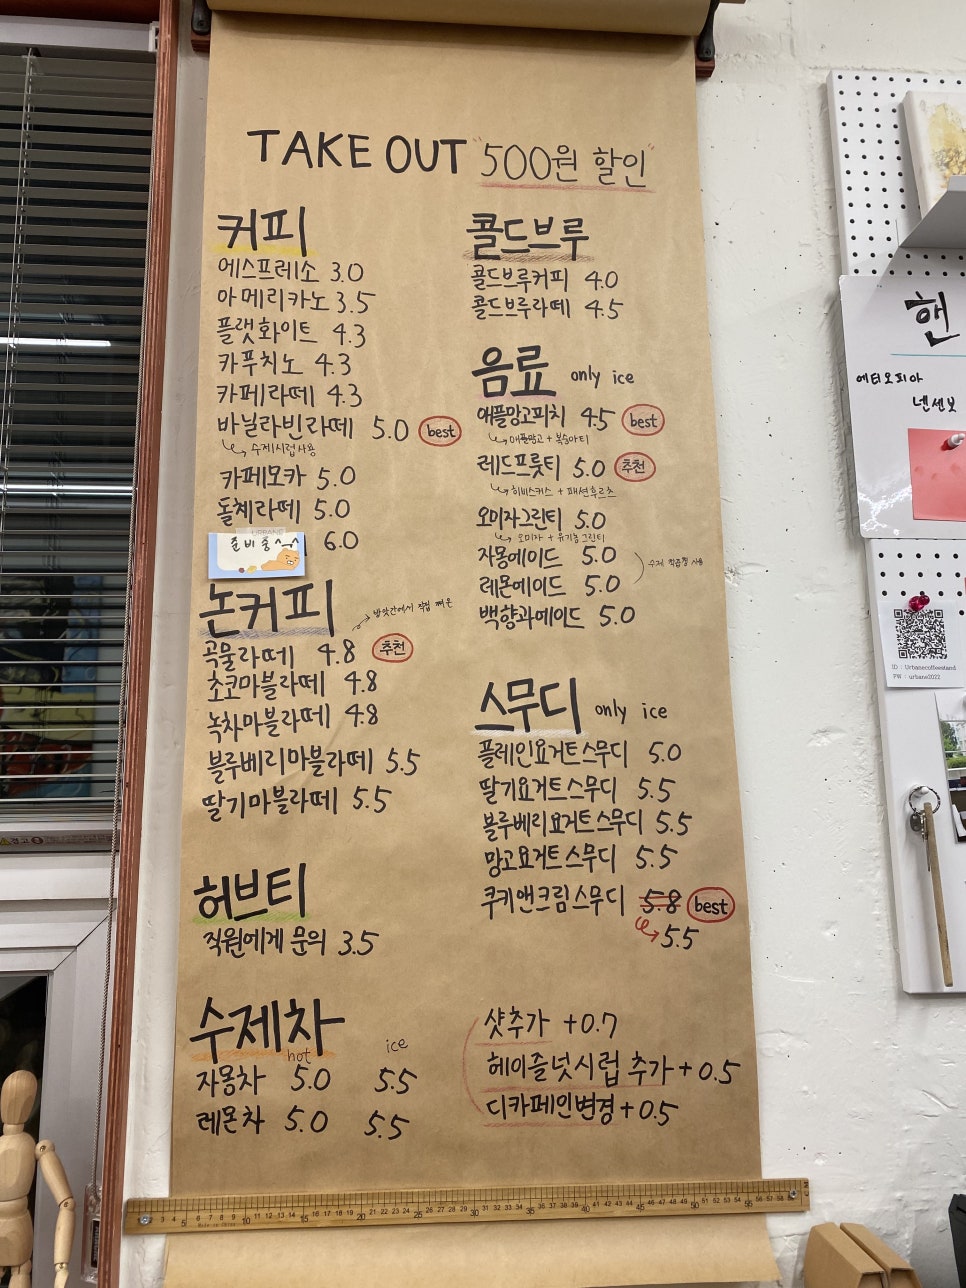 TAKE OUT "500원 할인"
커피
에스프레소 3.0
아메리카노 3.5
플랫화이트 4.3
카푸치노 4.3
카페라떼 4.3
바닐라빈라떼 5.0 best
수제시럽사용
카페모카 5.0
돌체라떼 5.0
URBANE
준비중 6.0
논커피
방앗간에서 직접
곡물라떼 4.8 추천
초코마블라떼 4.8
녹차마블라떼 4.8
블루베리마블라떼 5.5
딸기마블라떼 5.5
허브티
직원에게 문의 3.5
수제차
hot ice
자몽차 5.0 5.5
레몬차 5.0 5.5
콜드브루
콜드브루커피 4.0
콜드브루라떼 4.5
음료 only ice
애플망고피치 4.5 best
애플망고 + 복숭아티
레드프룻티 5.0 추천
히비스커스 + 패션후르츠
오미자그린티 5.0
오미자 + 유기농그린티
자몽에이드 5.0
수제 착즙청 사용
레몬에이드 5.0
백향과에이드 5.0
스무디 only ice
플레인요거트스무디 5.0
딸기요거트스무디 5.5
블루베리요거트스무디 5.5
망고요거트스무디 5.5
쿠키앤크림스무디 5.8 best
5.5
샷추가 +0.7
헤이즐넛시럽 추가 +0.5
디카페인변경 +0.5
핸
에티오피아
넨센보
ID : Urbanecoffeestand
PW : urbane2022